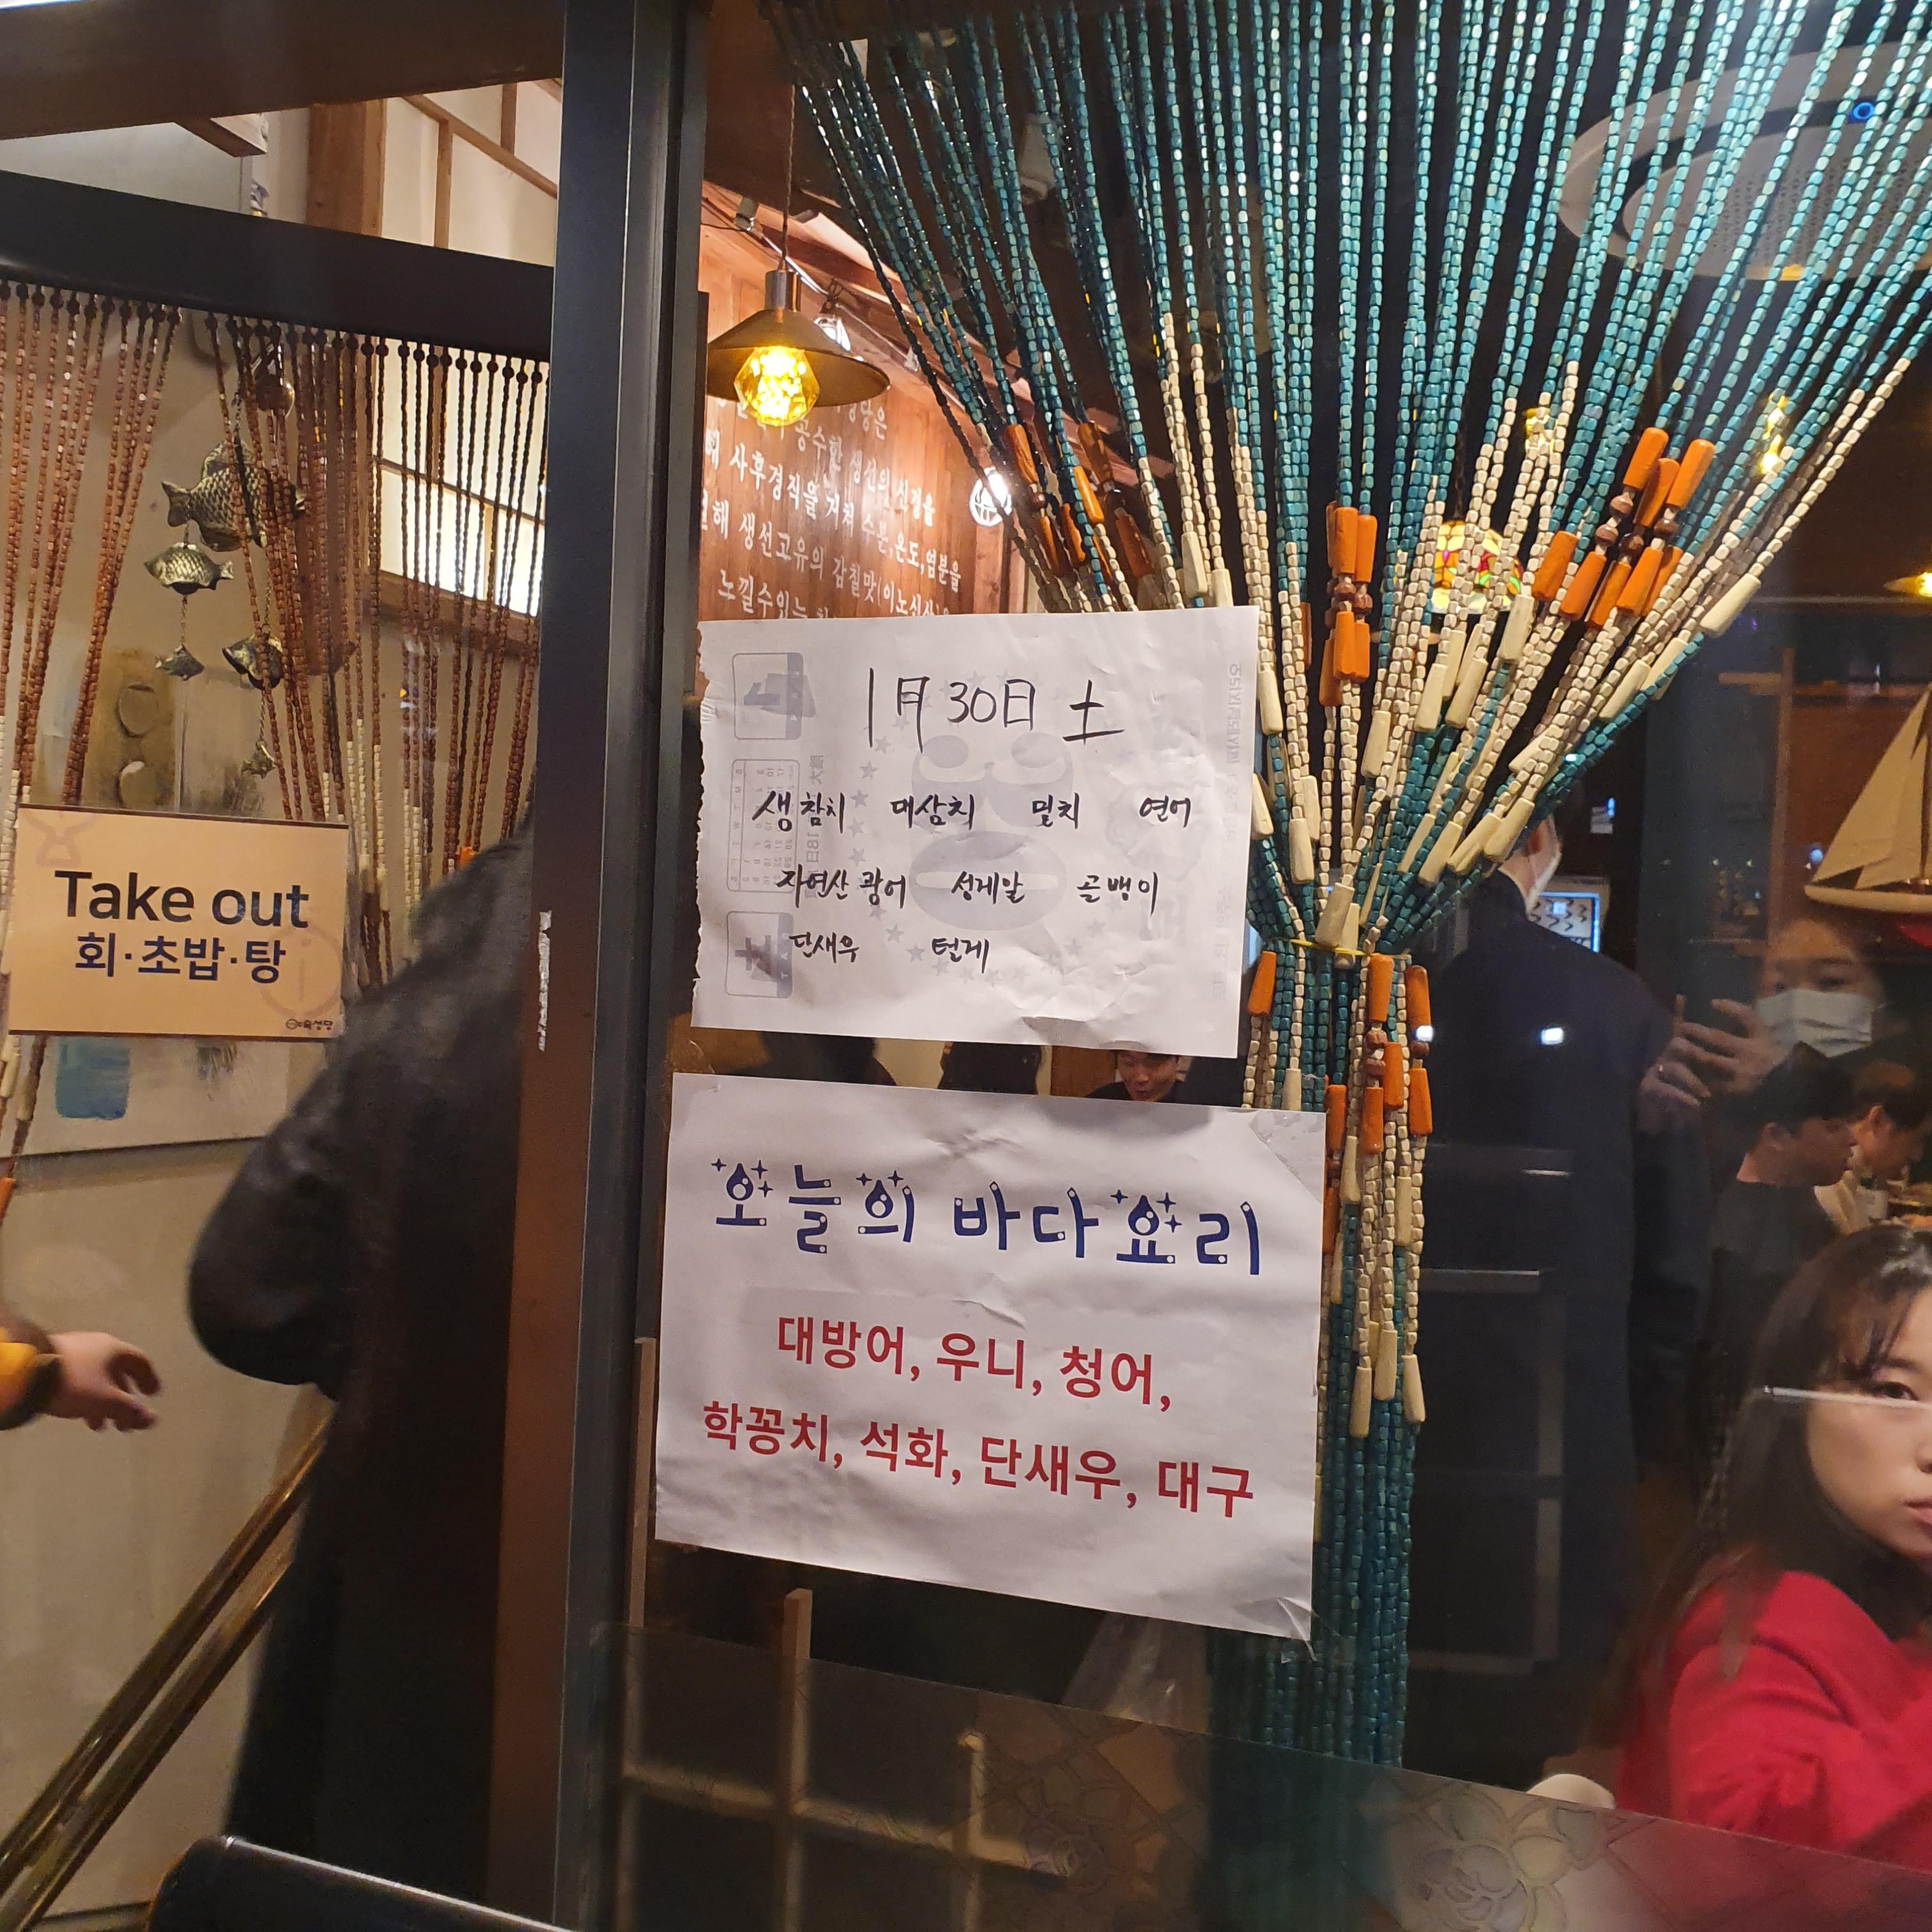 공수한 생선의 신경을
사후경직을 거쳐 수분,온도,염분을
해 생선고유의 감칠맛(이노신산)을
노낄수있는
Take out
회·초밥·탕
숙성당
1月 30日 土
생참치 대삼치 밀치 연어
자연산 광어 성게알 골뱅이
단새우 털게
오늘의 바다요리
대방어, 우니, 청어,
학꽁치, 석화, 단새우, 대구